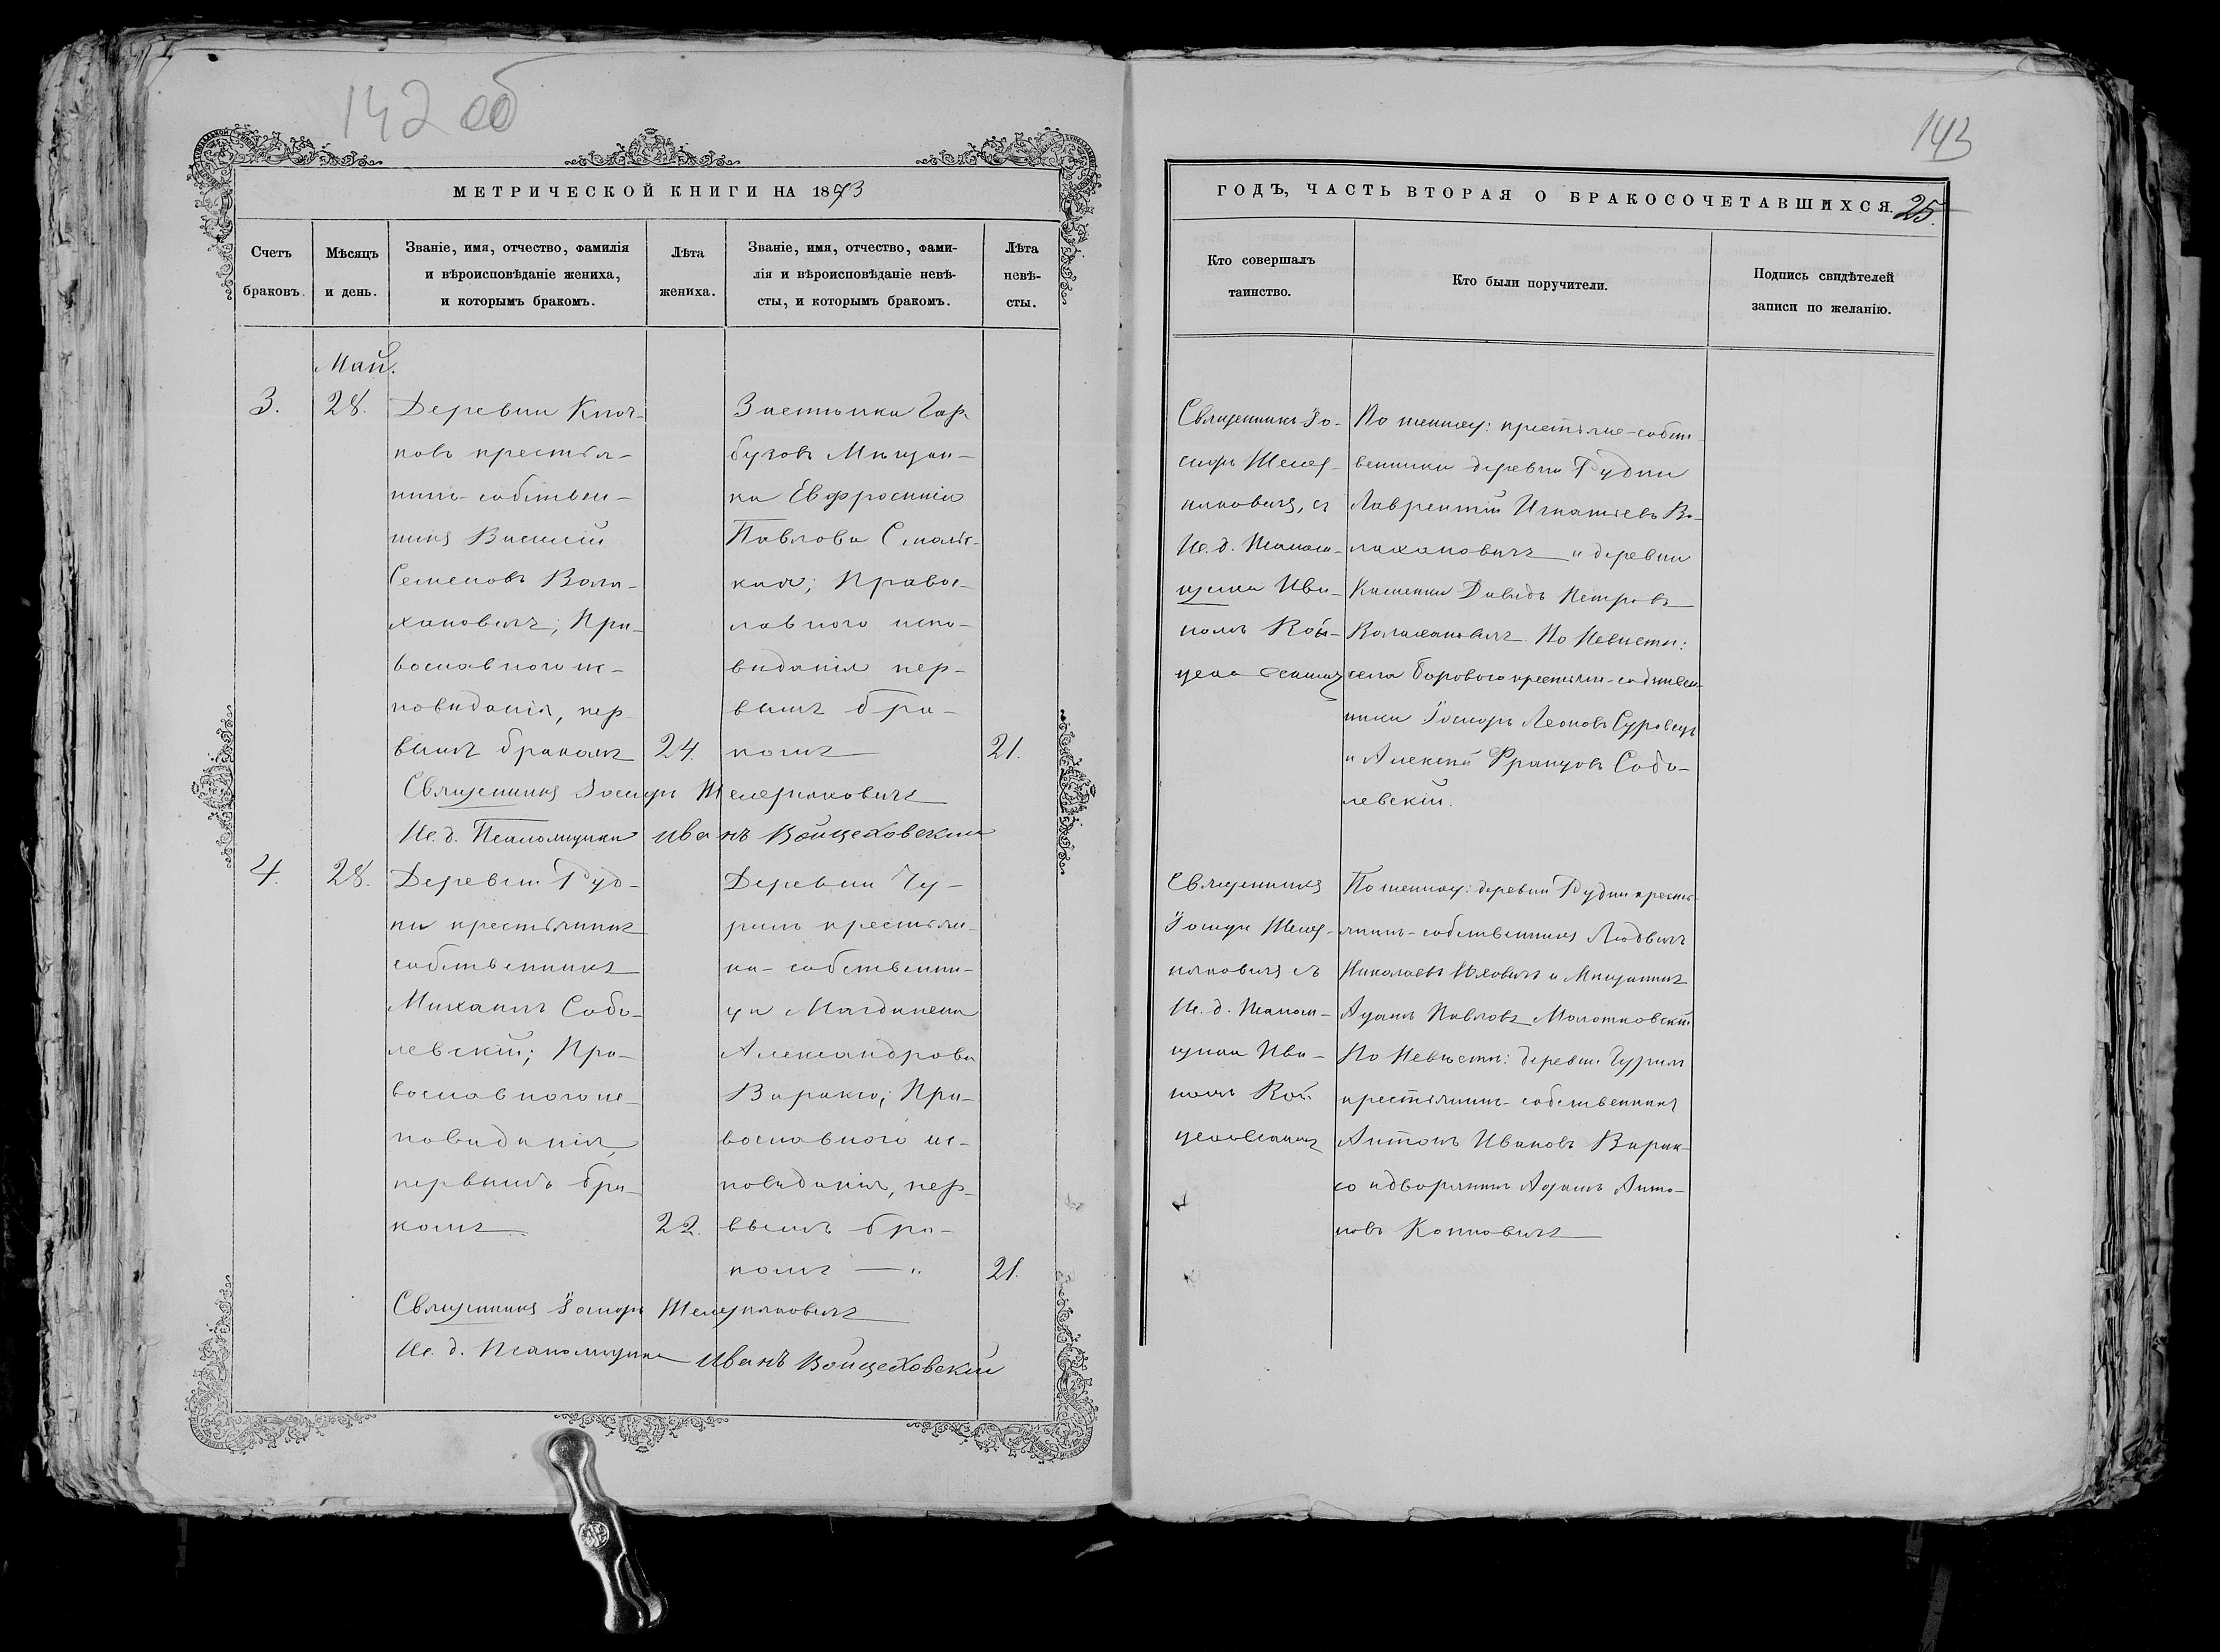 142 об
МЕТРИЧЕСКОЙ КНИГИ НА 1873
Счетъ браковъ.
Мѣсяцъ и день.
Званіе, имя, отчество, фамилія
и вѣроисповѣданіе жениха,
и которымъ бракомъ.
Лѣта жениха.
Званіе, имя, отчество, фами-
лія и вѣроисповѣданіе невѣ-
сты, и которымъ бракомъ.
Лѣта невѣ-
сты.
Май.
3.
28.
Деревни Ключ-
ковъ крестья-
нинъ-собствен-
никъ Василій
Семеновъ Вала-
хановичъ; Пра-
вославного ис-
повѣданія, пер-
вымъ бракомъ
24.
Застѣнка Гар-
бузовъ Мѣщан-
ка Евфросинія
Павлова
кая; Правос-
лавного испо-
вѣданія пер-
вымъ бра-
комъ
21.
Священникъ Іосифъ
Ис. д. Псаломщика Иванъ Войцеховскій
4.
28.
Деревни Руд-
ни крестьянинъ
собственникъ
Михаилъ Собо-
левскій; Пра-
вославного ис-
повѣданія,
первымъ бра-
комъ
22.
Деревни Чу-
рилъ крестьян-
ка-собственни-
ца Магдалена
Александрова
Варакso; Пра-
вославного ис-
повѣданія, пер-
вымъ бра-
комъ — „
21.
Священникъ Іосифъ
Ис. д. Псаломщика Иванъ Войцеховскій
143
ГОДЪ, ЧАСТЬ ВТОРАЯ О БРАКОСОЧЕТАВШИХСЯ. 25.
Кто совершалъ
таинство.
Кто были поручители.
Подпись свидѣтелей
записи по желанію.
Священникъ Іо-
сифъ
съ
Ис. д. Псалом-
щика Ива-
номъ Вой-
цеховскимъ
По жениху: крестьяне-собст-
венники деревни Рудни
Лаврентій Игнатьевъ Ва-
лахановичъ и деревни
Давидъ Петровъ
Валахановичъ. По Невѣстѣ:
села Борового крестьяне-собствен-
ники Іосифъ Леоновъ Суровецъ
и Алексѣй Францовъ Собо-
левскій.
Священникъ
Іосифъ
съ
Ис. д. Псалом-
щика Ива-
номъ Вой-
цеховскимъ
По жениху: деревни Рудни кресть-
янинъ-собственникъ Людвигъ
Николаевъ и Мѣщанинъ
Адамъ Павловъ Молотковскій
По Невѣстѣ: деревни Чурилъ
крестьянинъ-собственникъ
Антонъ Ивановъ Варак-
со и дворянинъ Адамъ Анто-
новъ